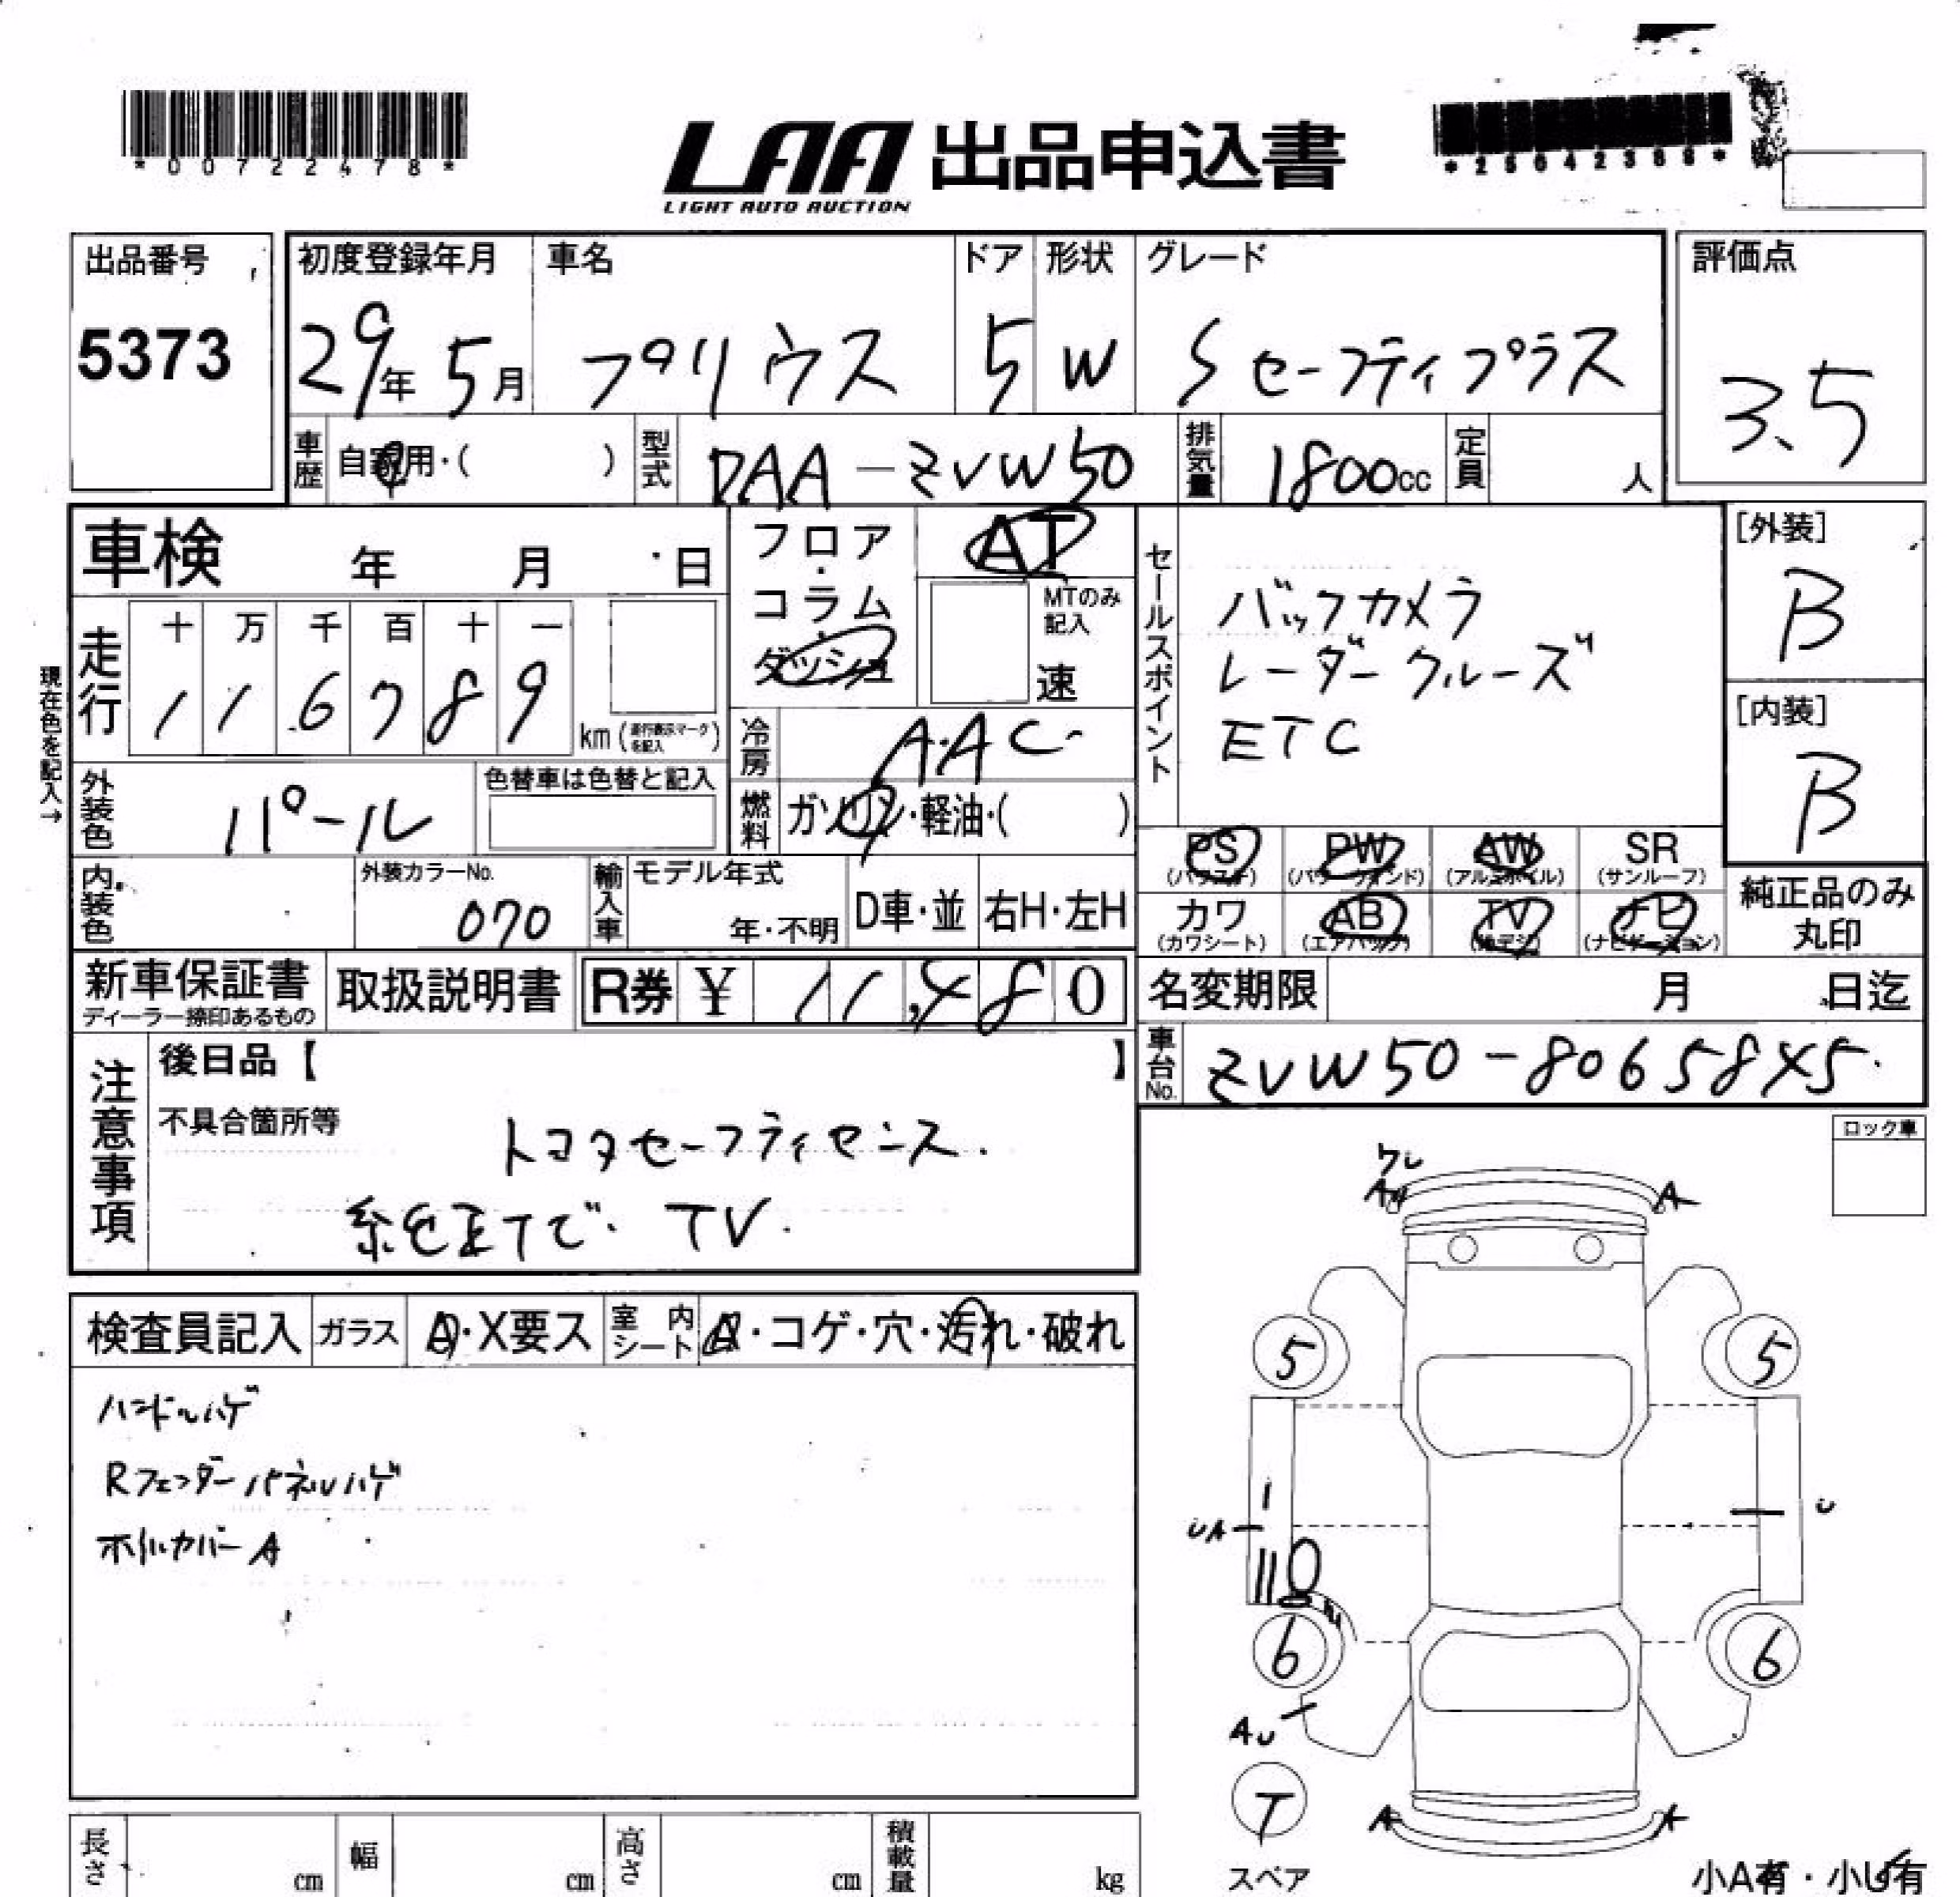 *00722478*
LAA 出品申込書
LIGHT AUTO AUCTION
*25042388*
出品番号
5373
初度登録年月
29年 5月
車名
プリウス
ドア
5
形状
W
グレード
Sセーフティプラス
評価点
3.5
車歴
自家用・( )
型式
DAA-ZVW50
排気量
1800cc
定員
人
車検 年 月 日
フロア・コラム・ダッシュ
AT
MTのみ記入
速
セールスポイント
バックカメラ
レーダークルーズ
ETC
[外装]
B
[内装]
B
現在色を記入→
走行
十 万 千 百 十 一
1 1 6 7 8 9
km (走行表示マークを記入)
冷房
AAC
外装色
パール
色替車は色替と記入
燃料
ガソリン・軽油・( )
内装色
外装カラーNo.
070
輸入車
モデル年式
年・不明
D車・並
右H・左H
PS
(パワステ)
PW
(パワーウインド)
AW
(アルミホイル)
SR
(サンルーフ)
カワ
(カワシート)
AB
(エアバッグ)
TV
(地デジ)
ナビ
(ナビゲーション)
純正品のみ
丸印
新車保証書
ディーラー捺印あるもの
取扱説明書
R券 ¥ 11,480
名変期限 月 日迄
車台No.
ZVW50-80658X5
注意事項
後日品【 】
不具合箇所等
トヨタセーフティセンス.
純正ナビ・TV.
ロック車
検査員記入
ガラス
A・X要ス
室内シート
A・コゲ・穴・汚れ・破れ
ハンドルハゲ
Rフェンダーパネルハゲ
ホイルカバーA
A
5
5
U
UA
6
6
AU
T
スペア
A
A
長さ cm
幅 cm
高さ cm
積載量 kg
小A有・小U有